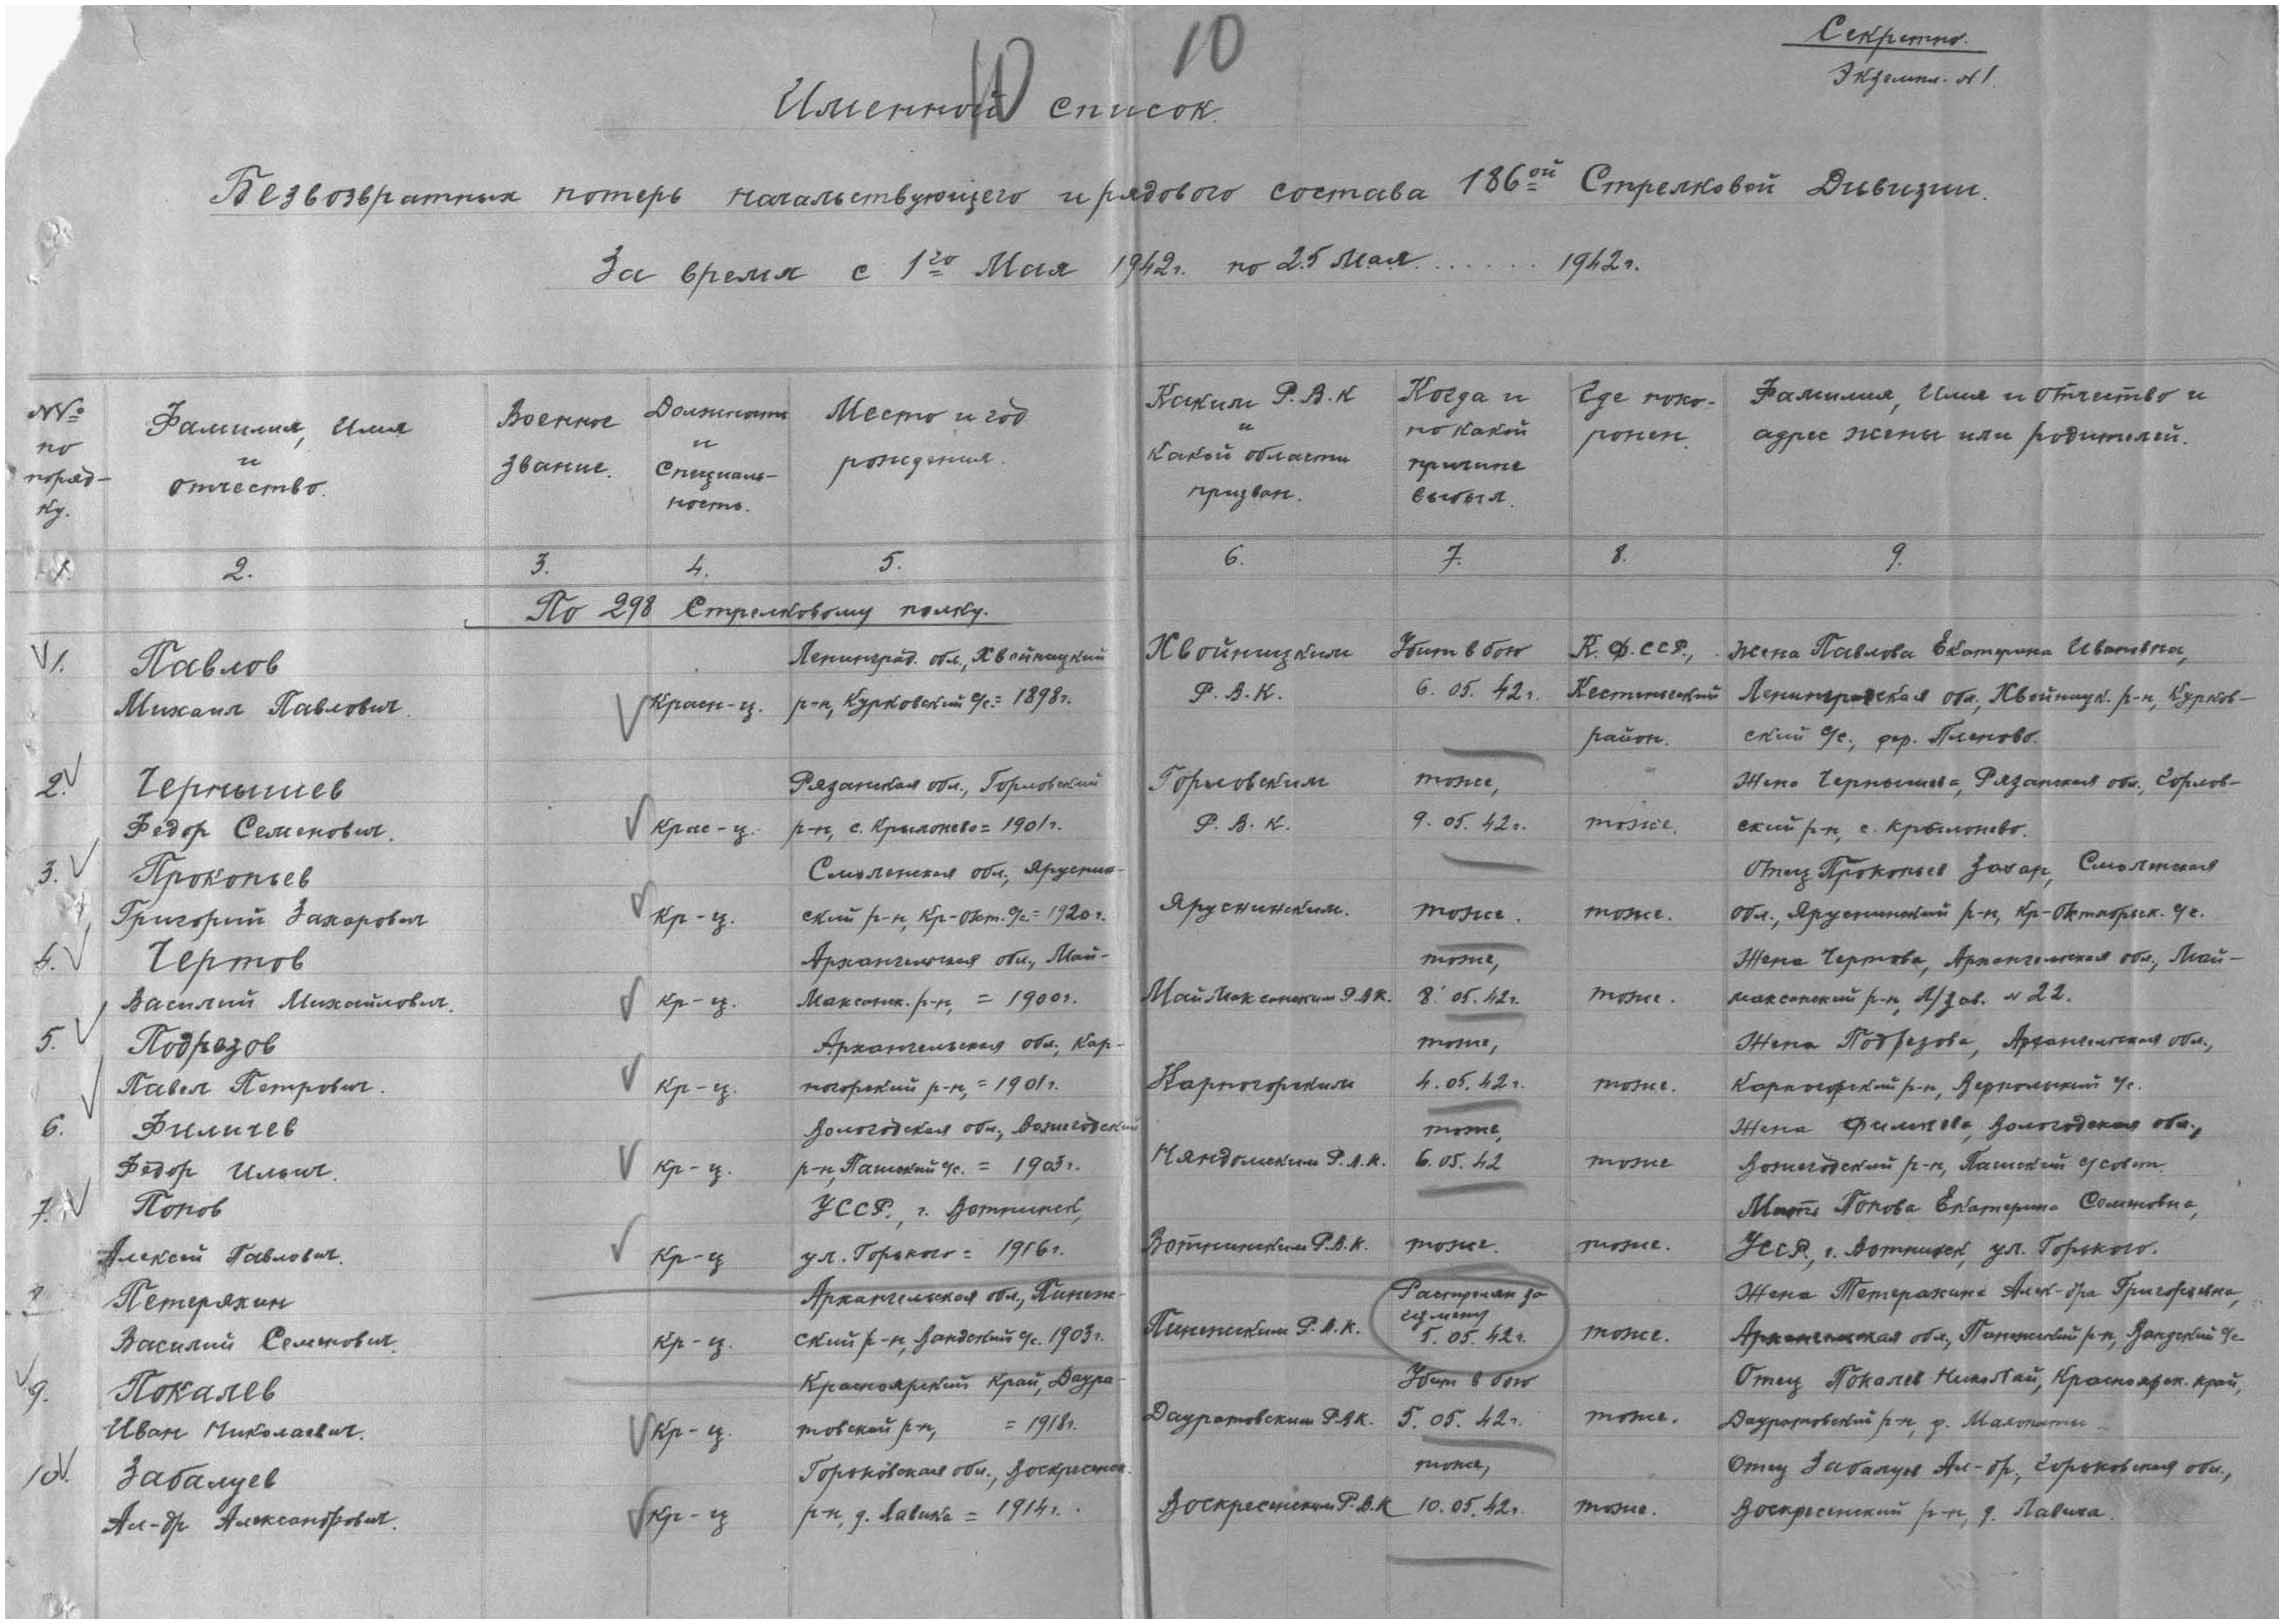 10
10
Секретно.
Экземпл. №1.
Именной список.
Безвозвратных потерь начальствующего и рядового состава 186ой Стрелковой Дивизии.
За время с 1го Мая 1942г. по 25 Мая ...... 1942г.
№№ по поряд-ку.
Фамилия, Имя и отчество.
Военное звание.
Должность и Специаль-ность.
Место и год рождения.
Каким Р.В.К и какой области призван.
Когда и по какой причине выбыл.
Где похо-ронен.
Фамилия, Имя и отчество и адрес жены или родителей.
1. 2. 3. 4. 5. 6. 7. 8. 9.
По 298 Стрелковому полку.
1. Павлов Ленинград. обл., Хвойницкий Хвойницким Убит в бою К.Ф.ССР., жена Павлова Екатерина Ивановна,
Михаил Павлович. Красн-ц. р-н, Курковский с/с. = 1898г. Р.В.К. 6.05.42г. Кестеньгский Ленинградская обл., Хвойницк. р-н, Курков-
район. ский с/с.,
2. Чернышев Рязанская обл., Горловский Горловским тоже, Жена Чернышева, Рязанская обл., Горлов-
Федор Семенович. Крас-ц. р-н, с. = 1901г. Р.В.К. 9.05.42г. тоже. ский р-н, с.
3. Прокопьев Смоленская обл., Отец Прокопьев Захар, Смоленская
Григорий Захарович Кр-ц. ский р-н, Кр-Окт. с/с. = 1920г. тоже. тоже. обл., р-н, Кр-Октябрьск. с/с.
4. Чертов Архангельская обл., Май- тоже, Жена Чертова, Архангельская обл., Май-
Василий Михайлович. Кр-ц. Максанск. р-н, = 1900г. МайМаксанским Р.В.К. 8.05.42г. тоже. максанский р-н, Л/зав. №22.
5. Подрезов Архангельская обл., Кар- тоже, Жена Подрезова, Архангельская обл.,
Павел Петрович. Кр-ц. ногорский р-н, = 1901г. Карногорским 4.05.42г. тоже. Карногорский р-н, с/с.
6. Филичев Вологодская обл., Вожегодский тоже, Жена Филичева, Вологодская обл.,
Федор Ильич. Кр-ц. р-н, с/с. = 1903г. Няндомским Р.В.К. 6.05.42 тоже Вожегодский р-н, с/совет.
7. Попов УССР., г. Воткинск, Мать Попова Екатерина Семеновна,
Алексей Павлович. Кр-ц ул. Горького = 1916г. Воткинским Р.В.К. тоже. тоже. УССР., г. Воткинск, ул. Горького.
8 Петеряхин Архангельская обл., Пинеж- Расстрелян за Жена Петеряхина Алек-дра Григорьевна,
измену
Василий Семенович. Кр-ц. ский р-н, с/с. 1903г. Пинежским Р.В.К. 5.05.42г. тоже. Архангельская обл., Пинежский р-н, с/с
9. Покалев Красноярский край, Даура- Убит в бою Отец Покалев Николай, Красноярск. край,
Иван Николаевич. Кр-ц. товский р-н, = 1918г. Дауратовским Р.В.К. 5.05.42г. тоже. Дауратовский р-н, д.
10. Забалуев Горьковская обл., Воскресенск. тоже, Отец Забалуев Ал-др., Горьковская обл.,
Ал-др Александрович. Кр-ц р-н, д. = 1914г. Воскресенским Р.В.К 10.05.42г. тоже. Воскресенский р-н, д.